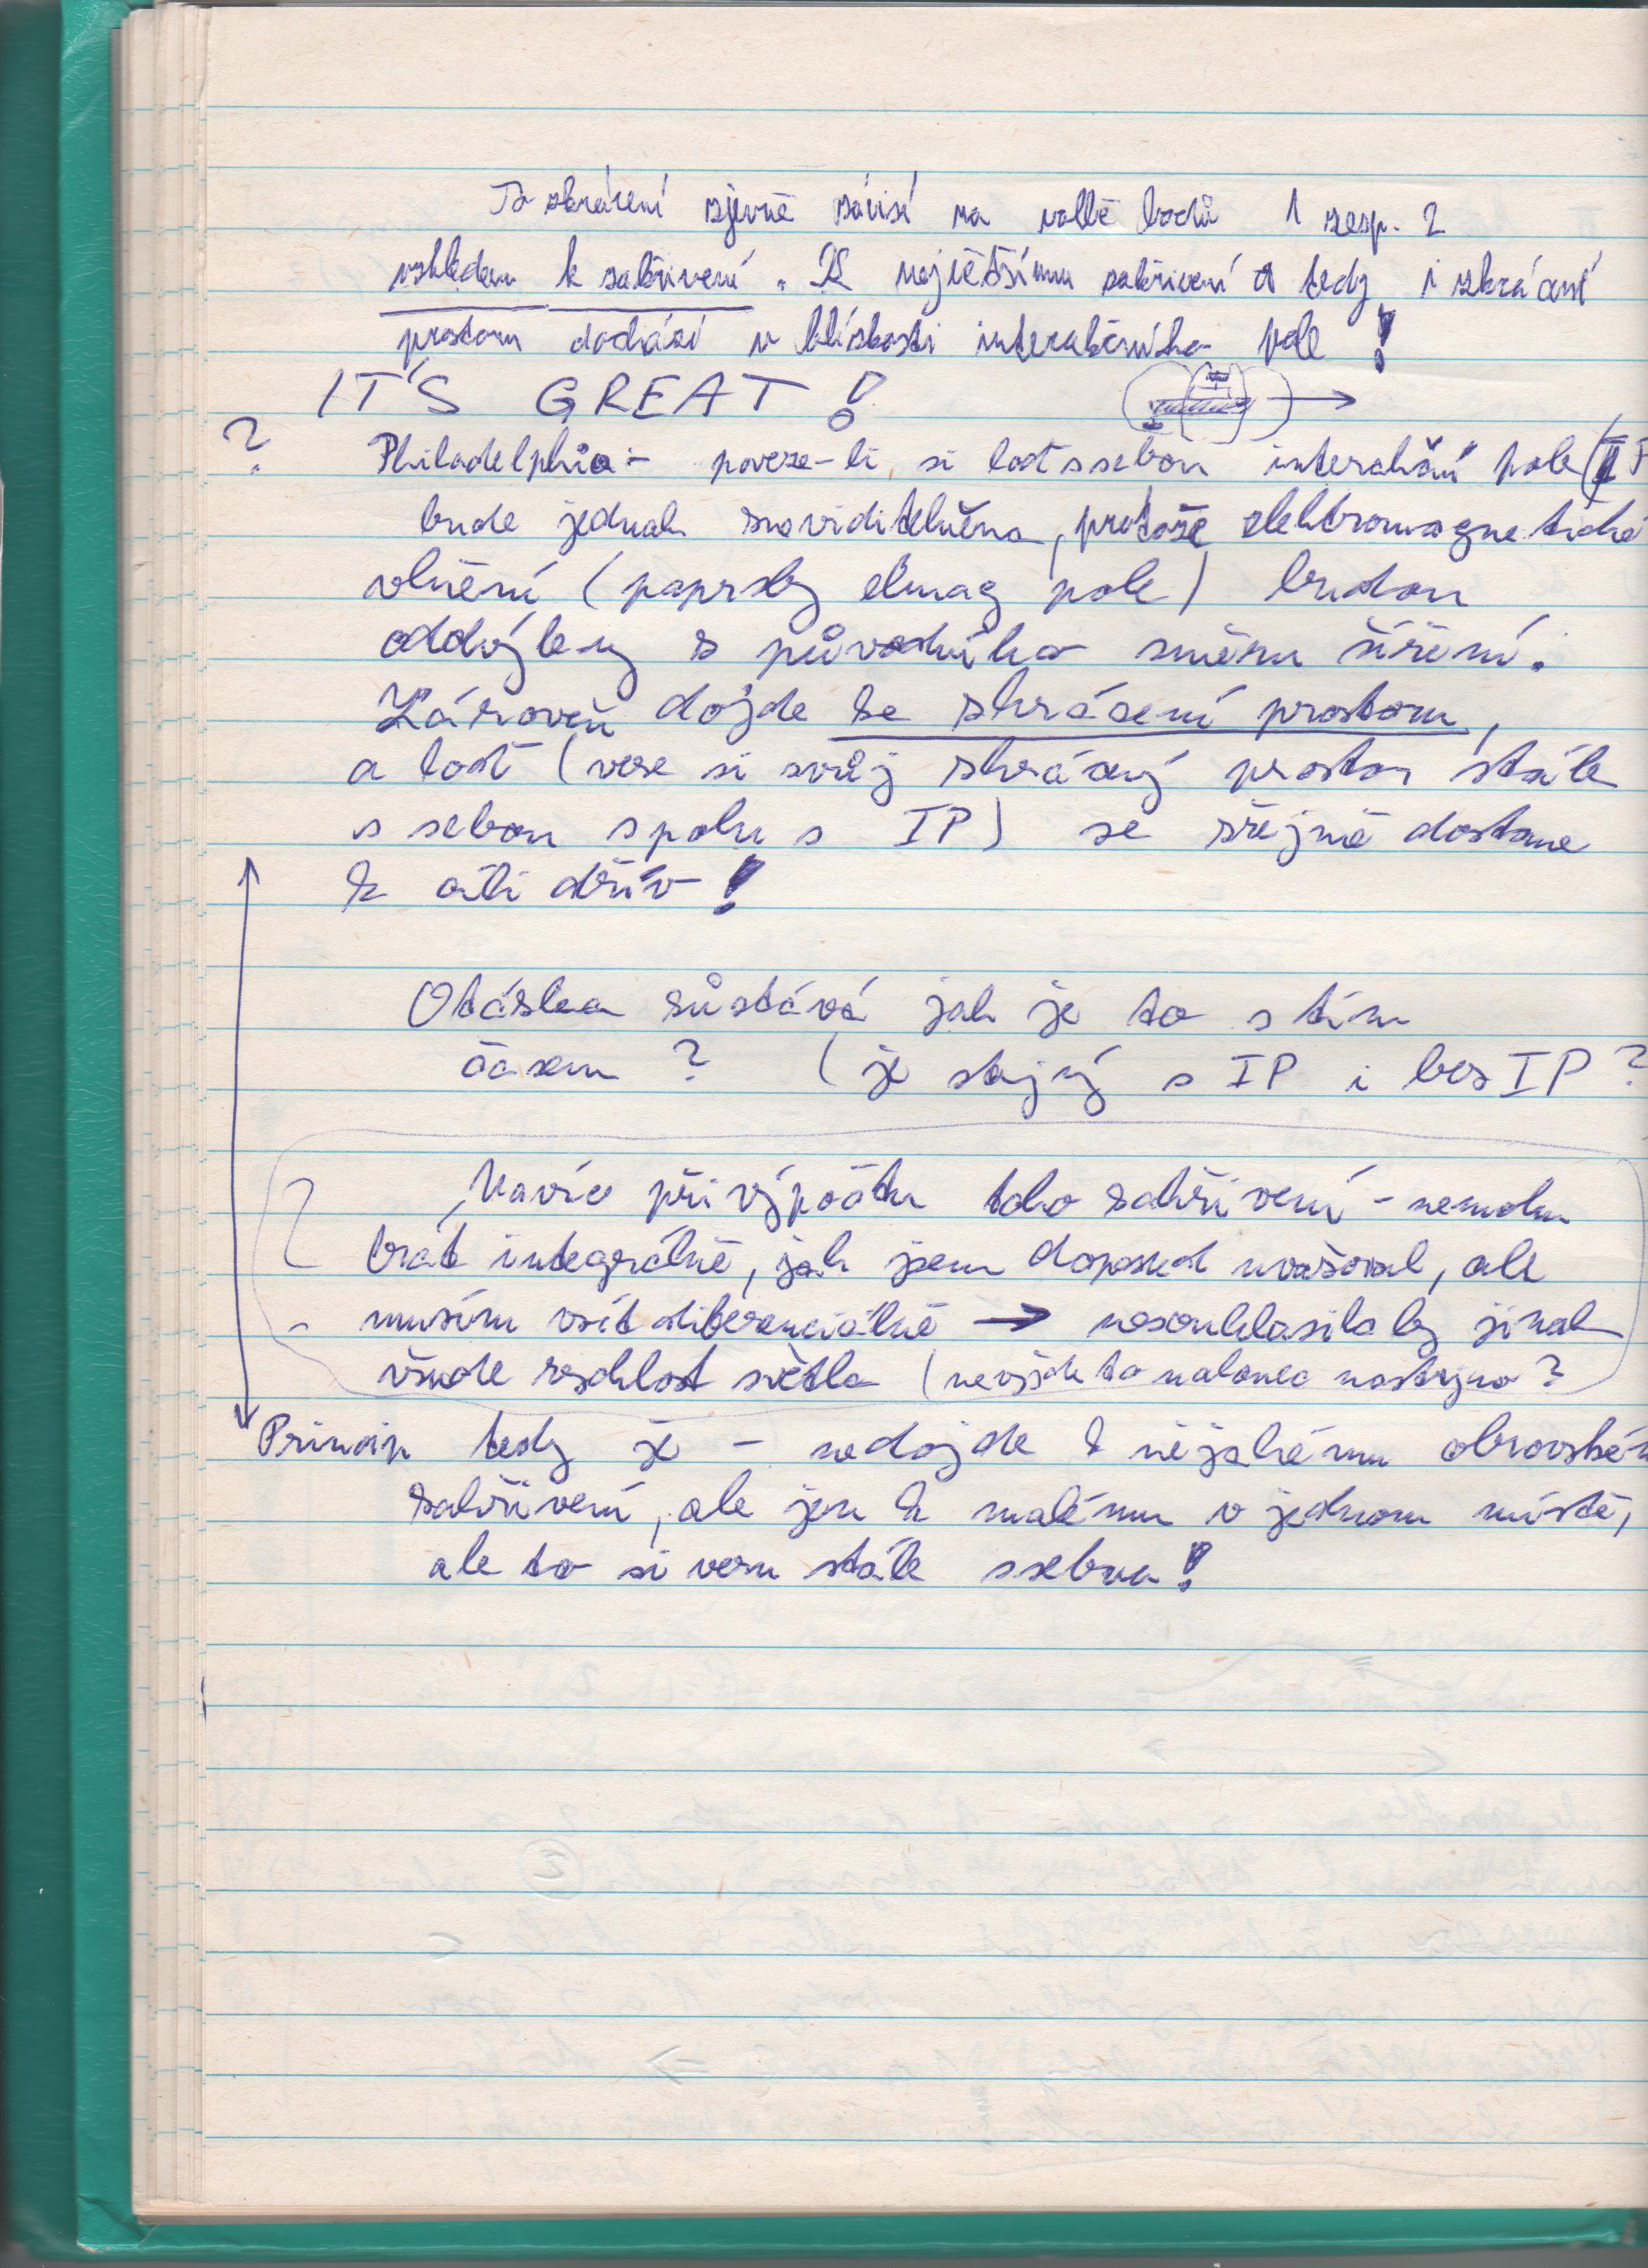 To zkrácení zjevně závisí na volbě bodů 1 resp. 2
vzhledem k zakřivení. K největšímu zakřivení a tedy i zkrácení
prostoru dochází v blízkosti interakčního pole !
IT'S GREAT !
? Philadelphia - poveze-li si loď s sebou interakční pole (IP
bude jednak zneviditelněna, protože elektromagnetické
vlnění (paprsky elmag pole) budou
odkloněny z původního směru šíření.
Zároveň dojde ke zkrácení prostoru,
a loď (veze si svůj zkrácený prostor stále
s sebou spolu s IP) se zřejmě dostane
k cíli dřív !
Otázka zůstává jak je to s tím
časem ? (je stejný s IP i bez IP ?
Navíc při výpočtu toho zakřivení - nemohu
brát integrálně, jak jsem doposud uvažoval, ale
musím vzít diferenciálně → nesouhlasila by jinak
všude rychlost světla (nevyjde to nakonec nastejno ?
Princip tedy je - nedojde k nějakému obrovském
zakřivení, ale jen k malému v jednom místě,
ale to si vezu stále s sebou !